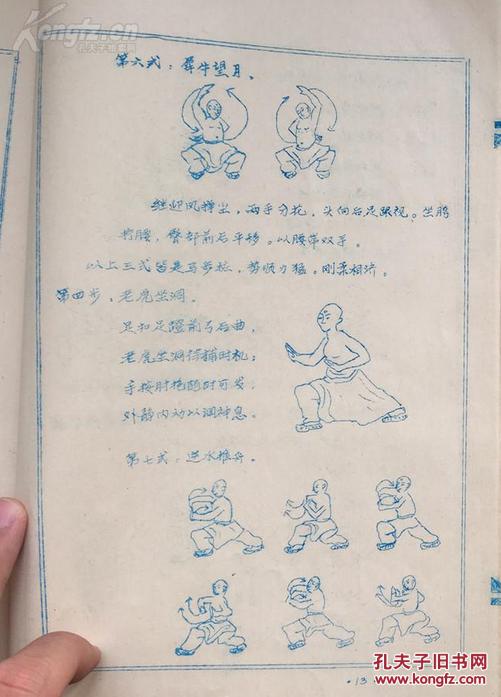 Kongfz.com
孔夫子旧书网
第六式：犀牛望月、
继迎风掸尘，两手分花，头向后足跟视。坐胯
拧腰，臀部前后平移。以腰带双手。
以上三式皆是马步桩，势顺力猛。刚柔相济。
第四步，老虎坐洞。
足和足蹬前弓后曲，
老虎坐洞待捕时机；
手按肘抱随时可发；
外静内动以调神息。
第七式：逆水推舟。
·13
孔夫子旧书网
www.kongfz.com